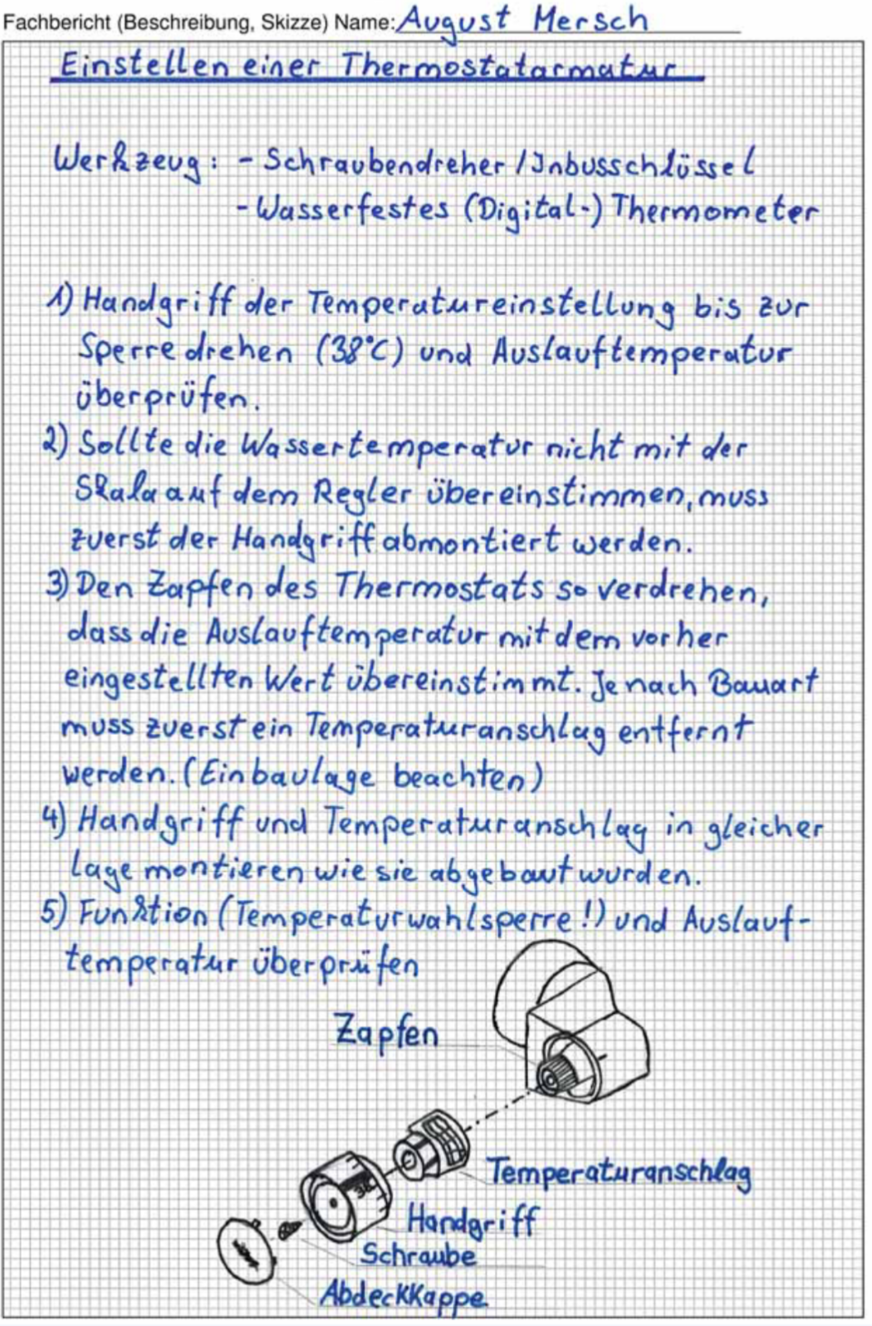 Fachbericht (Beschreibung, Skizze) Name: August Mersch
Einstellen einer Thermostatarmatur
Werkzeug: - Schraubendreher / Inbusschlüssel
- Wasserfestes (Digital-) Thermometer
1) Handgriff der Temperatureinstellung bis zur
Sperre drehen (38°C) und Auslauftemperatur
überprüfen.
2) Sollte die Wassertemperatur nicht mit der
Skala auf dem Regler übereinstimmen, muss
zuerst der Handgriff abmontiert werden.
3) Den Zapfen des Thermostats so verdrehen,
dass die Auslauftemperatur mit dem vorher
eingestellten Wert übereinstimmt. Je nach Bauart
muss zuerst ein Temperaturanschlag entfernt
werden. (Einbaulage beachten)
4) Handgriff und Temperaturanschlag in gleicher
Lage montieren wie sie abgebaut wurden.
5) Funktion (Temperaturwahlsperre!) und Auslauf-
temperatur überprüfen
Zapfen
Temperaturanschlag
38
Handgriff
Schraube
Abdeckkappe